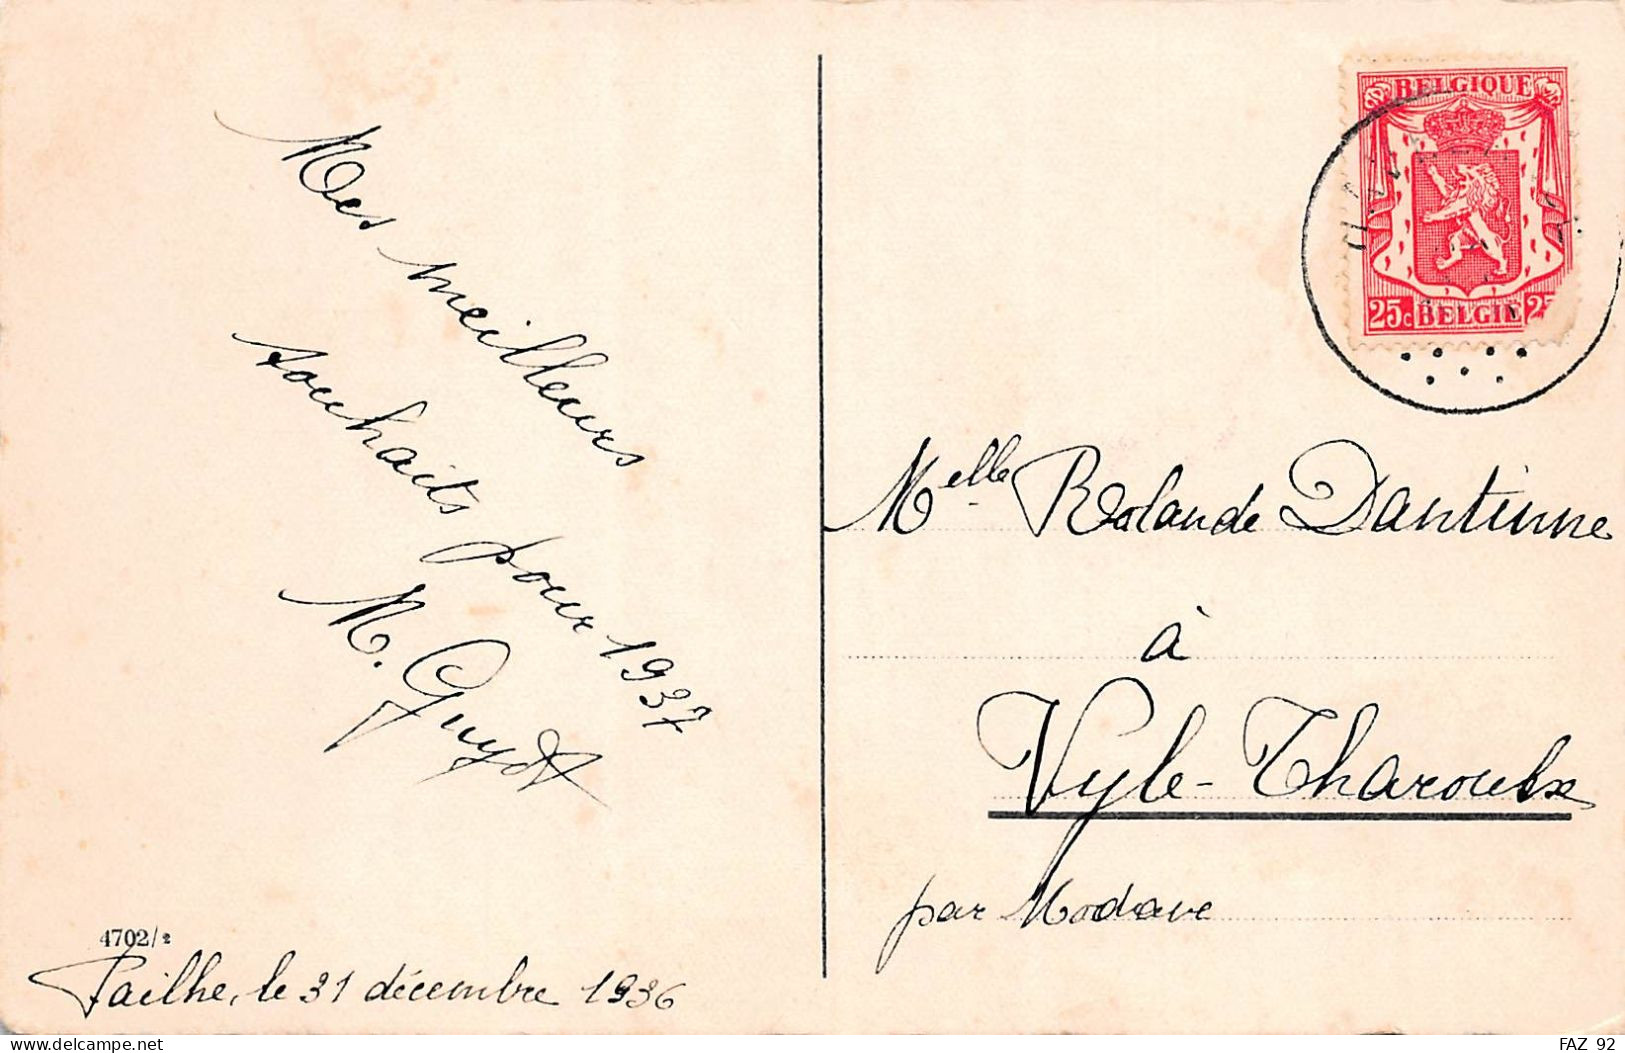 Mes meilleurs
souhaits pour 1937
M. Guyot
4702/2
Pailhe, le 31 décembre 1936
BELGIQUE
25c BELGIË 25
Melle Rolande Dantinne
à
Vyle-Tharoulx
par Modave
www.delcampe.net
FAZ 92